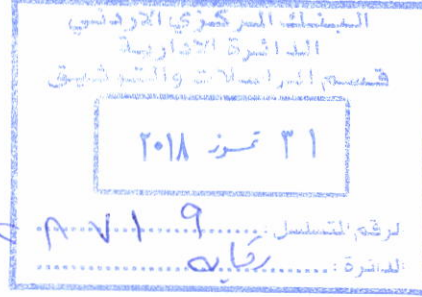 البنك المركزي الأردني
الدائرة الادارية
قسم المراسلات والتوثيق
٣١ تموز ٢٠١٨
الرقم المتسلسل : ٨٧١٩
الدائرة : رقابه